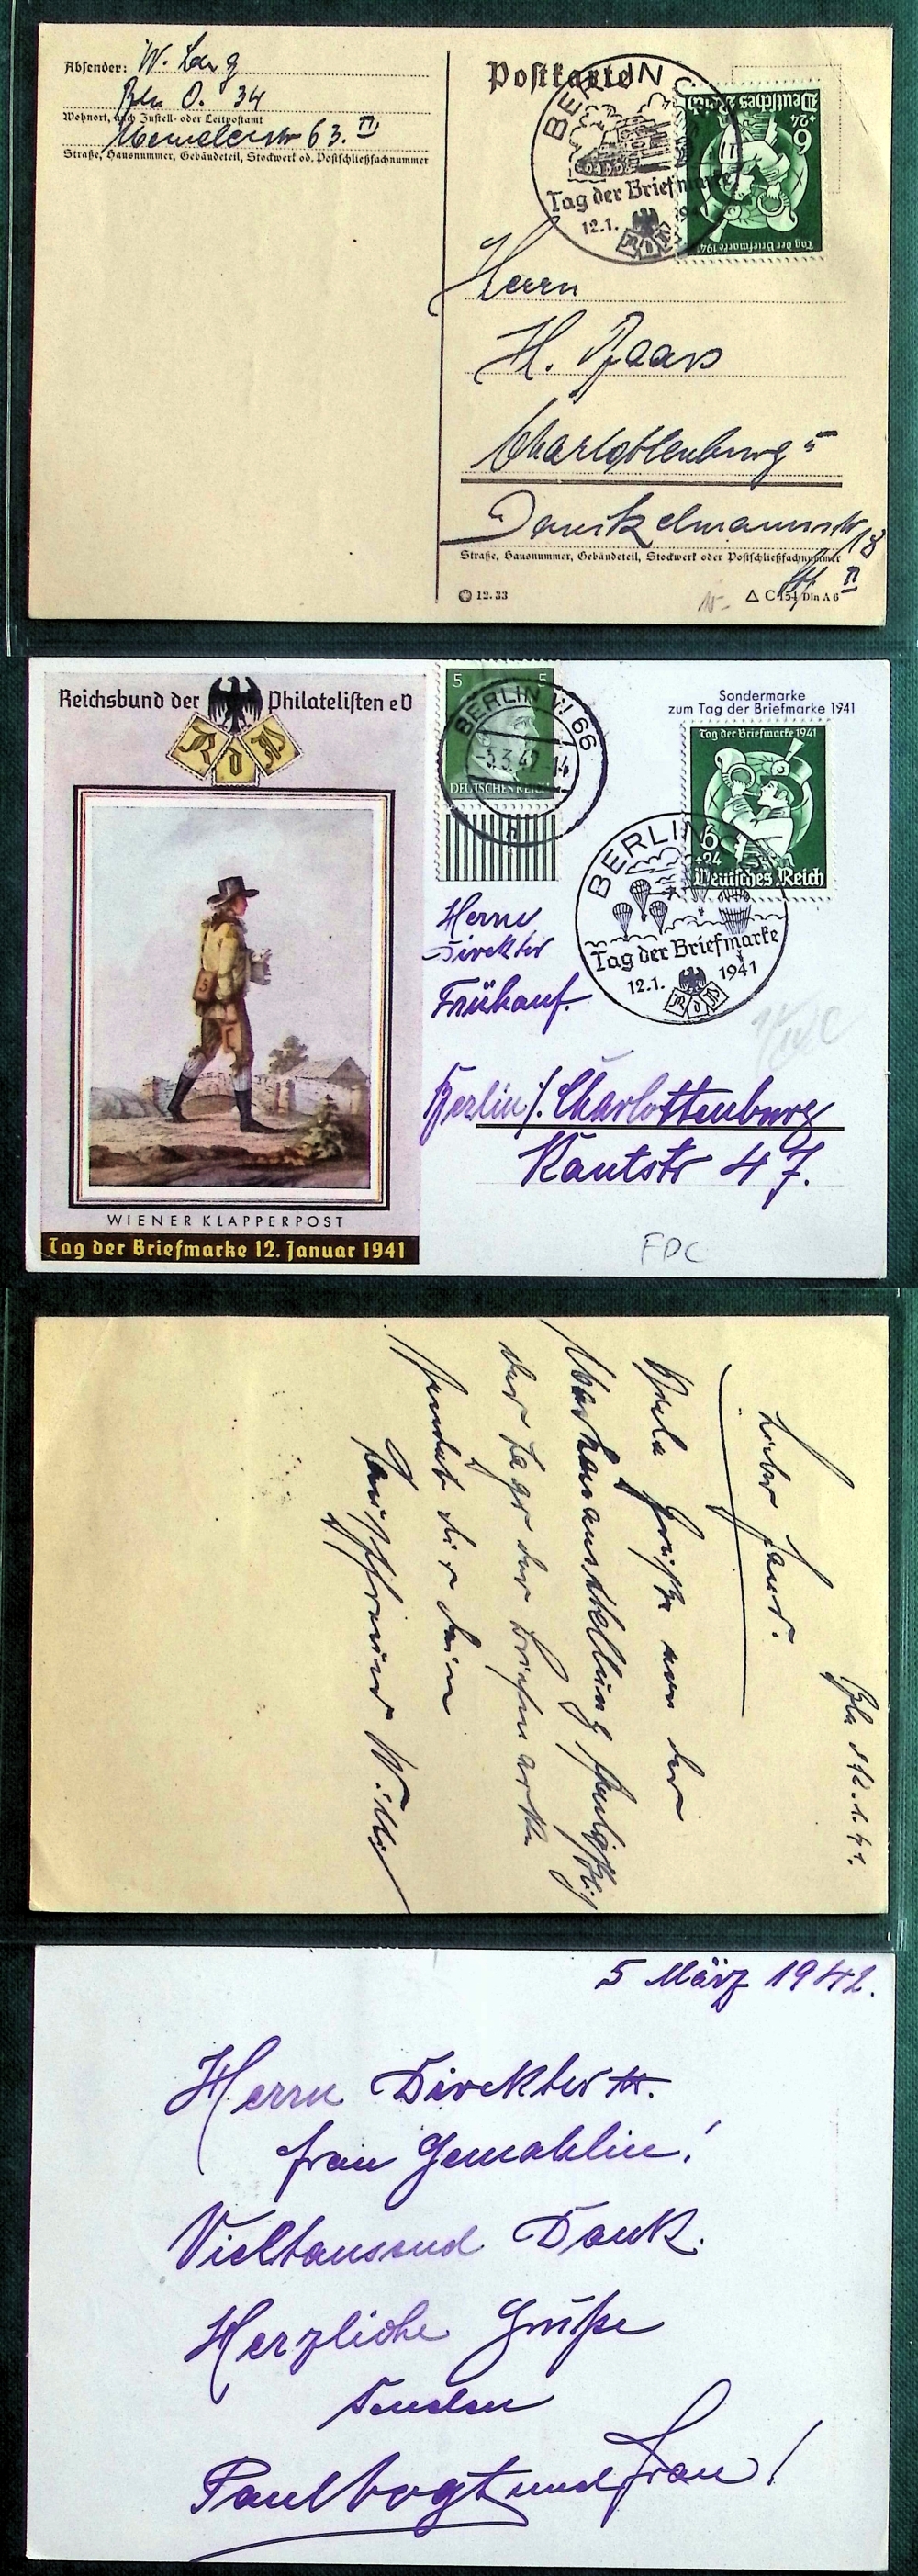 Absender: W. Lang
Bln O. 34
Wohnort, auch Zustell- oder Leitpostamt
Memelerstr 63. II
Straße, Hausnummer, Gebäudeteil, Stockwerk od. Postschließfachnummer
Postkarte
BERLIN C
Tag der Briefmarke
12.1. 1941
RDP
Deutsches Reich
6
+24
Tag der Briefmarke 1941
Herrn
H. Paars
Charlottenburg 5
Danckelmannstr 18
II
Straße, Hausnummer, Gebäudeteil, Stockwerk oder Postschließfachnummer
12.33
C 154 Din A6
Reichsbund der Philatelisten eV
RDP
WIENER KLAPPERPOST
Tag der Briefmarke 12. Januar 1941
5 5
DEUTSCHES REICH
BERLIN W 66
5.3.42 14
h
Sondermarke
zum Tag der Briefmarke 1941
Tag der Briefmarke 1941
6
+24
Deutsches Reich
BERLIN
Tag der Briefmarke
12.1. 1941
RDP
Herrn
Direktor
Frühauf.
Berlin/. Charlottenburg
Kantstr 47.
FDC
Bln d 12.1.41.
Lieber Hans.
Viele Grüße von der
der Tage der Briefmarke
sendet dir dein
Tauschfreund Willi
5 März 1942.
Herrn Direktor u.
Frau Gemahlin!
Vieltausend Dank.
Herzliche Grüße
senden
Paul Vogt und Frau!